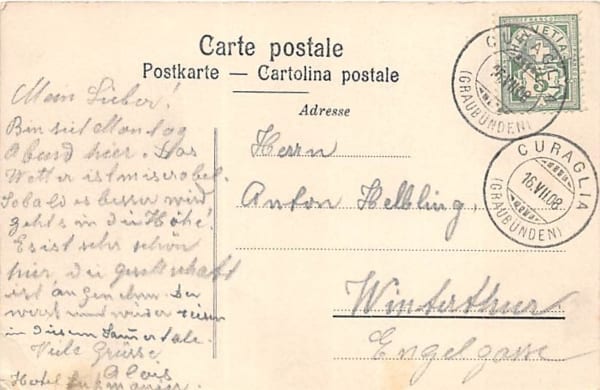 Carte postale
Postkarte — Cartolina postale
Adresse
Mein Lieber!
Bin seit Montag
Abend hier. Das
Wetter ist miserabel.
Sobald es besser wird
gehts in die Höhe!
Es ist sehr schön
hier, die Gesellschaft
ist angenehm. Der
wird und wieder reisen
in diesem Sauertale.
Viele Grüsse
Alois
Hotel Lukmanier
Herrn
Anton Helbling,
Winterthur
Engelgasse
HELVETIA
FRANCO
5
CURAGLIA
(GRAUBÜNDEN)
CURAGLIA
16.VII.08.
(GRAUBÜNDEN)